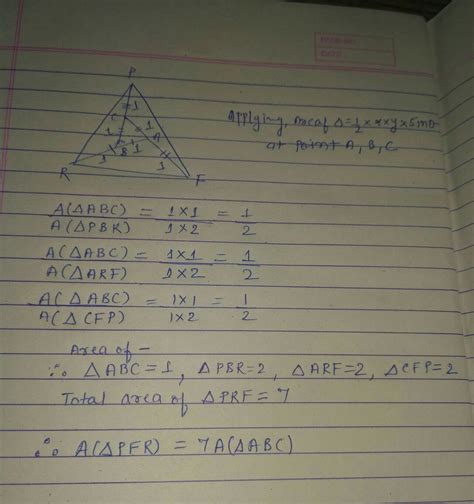 PAGE NO.:
DATE:
P
1
C
1
1
A
1
B
1
1
R
F
Applying, Area of Δ = 1/2 × x × y × Sinθ
at point A, B, C
A(ΔABC)/A(ΔPBR) = 1×1/1×2 = 1/2
A(ΔABC)/A(ΔARF) = 1×1/1×2 = 1/2
A(ΔABC)/A(ΔCFP) = 1×1/1×2 = 1/2
Area of -
∴ ΔABC = 1, ΔPBR = 2, ΔARF = 2, ΔCFP = 2
Total area of ΔPRF = 7
∴ A(ΔPFR) = 7A(ΔABC)